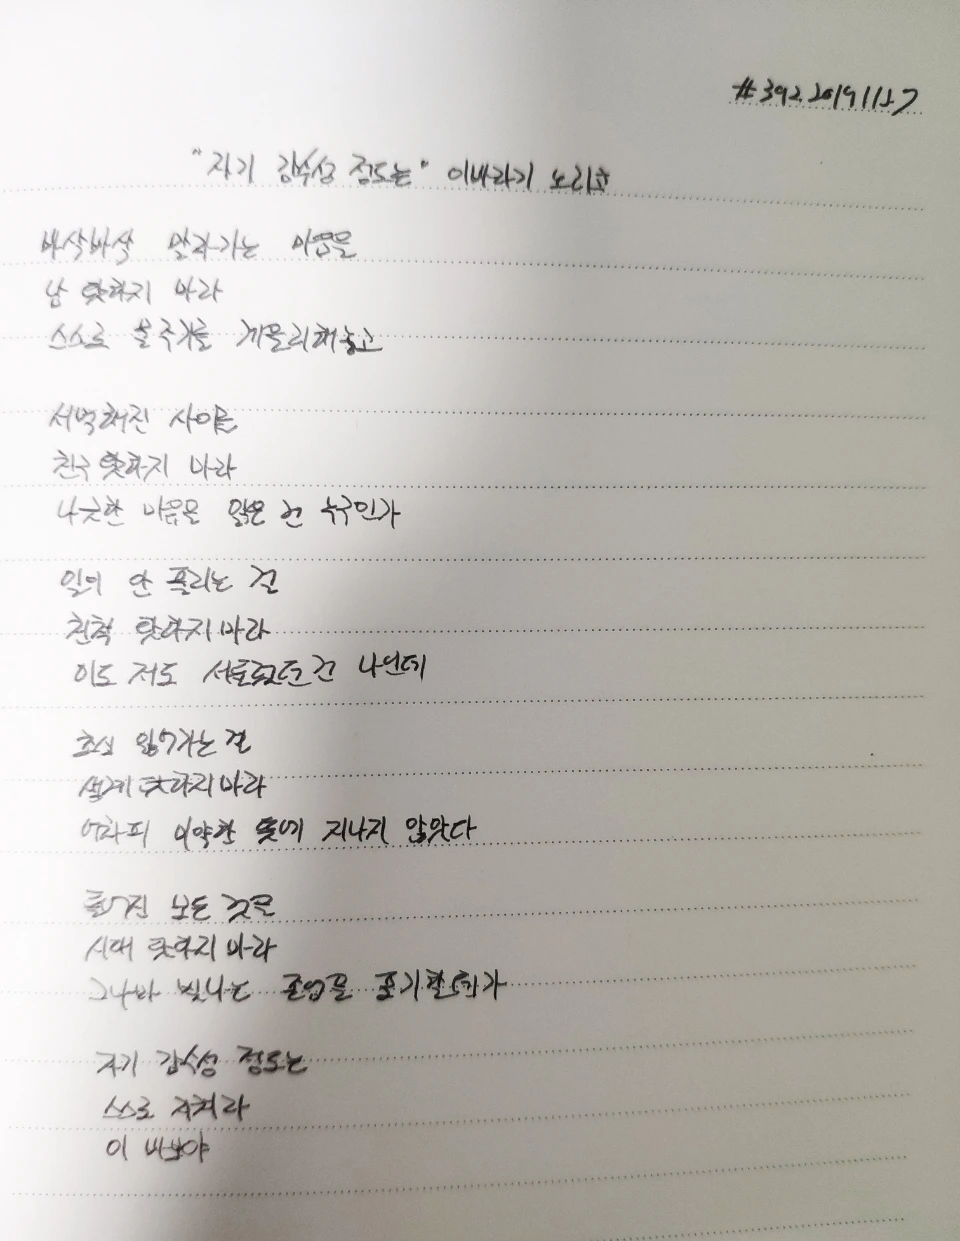 #392. 20191127
"자기 감수성 정도는" 이바라기 노리코
바삭바삭 말라가는 마음을
남 탓하지 마라
스스로 물주기를 게을리해놓고
서먹해진 사이를
친구 탓하지 마라
나긋한 마음을 잃은 건 누구인가
일이 안 풀리는 걸
친척 탓하지 마라
이도 저도 서툴렀던 건 나인데
초심 잃어가는 걸
생계 탓하지 마라
어차피 미약한 뜻에 지나지 않았다
틀어진 모든 것을
시대 탓하지 마라
그나마 빛나는 존엄을 포기할 텐가
자기 감수성 정도는
스스로 지켜라
이 바보야